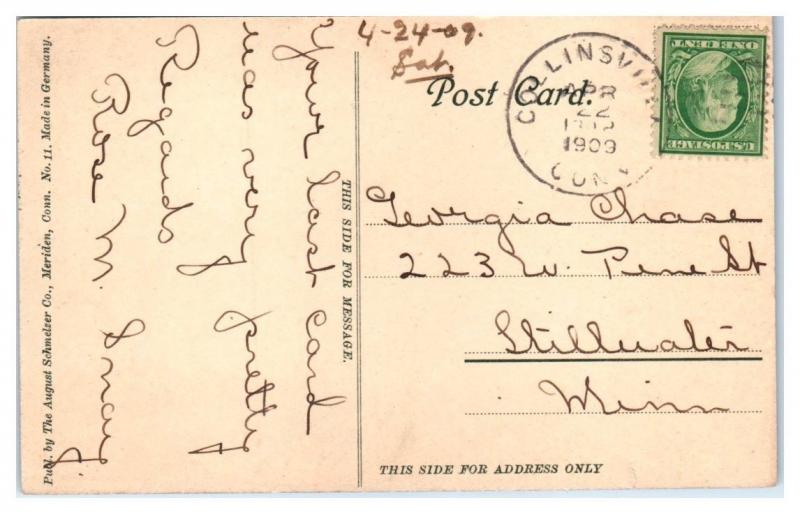 4-24-09.
Sat.
Post Card.
COLLINSVILLE
APR
22
1909
CONN
ONE CENT
U.S. POSTAGE
Georgia Chase
223 W. Pine St
Stillwater
Minn
THIS SIDE FOR ADDRESS ONLY
THIS SIDE FOR MESSAGE.
Your last card
was very pretty
Regards
Rose M.
Publ. by The August Schmelzer Co., Meriden, Conn. No. 11. Made in Germany.